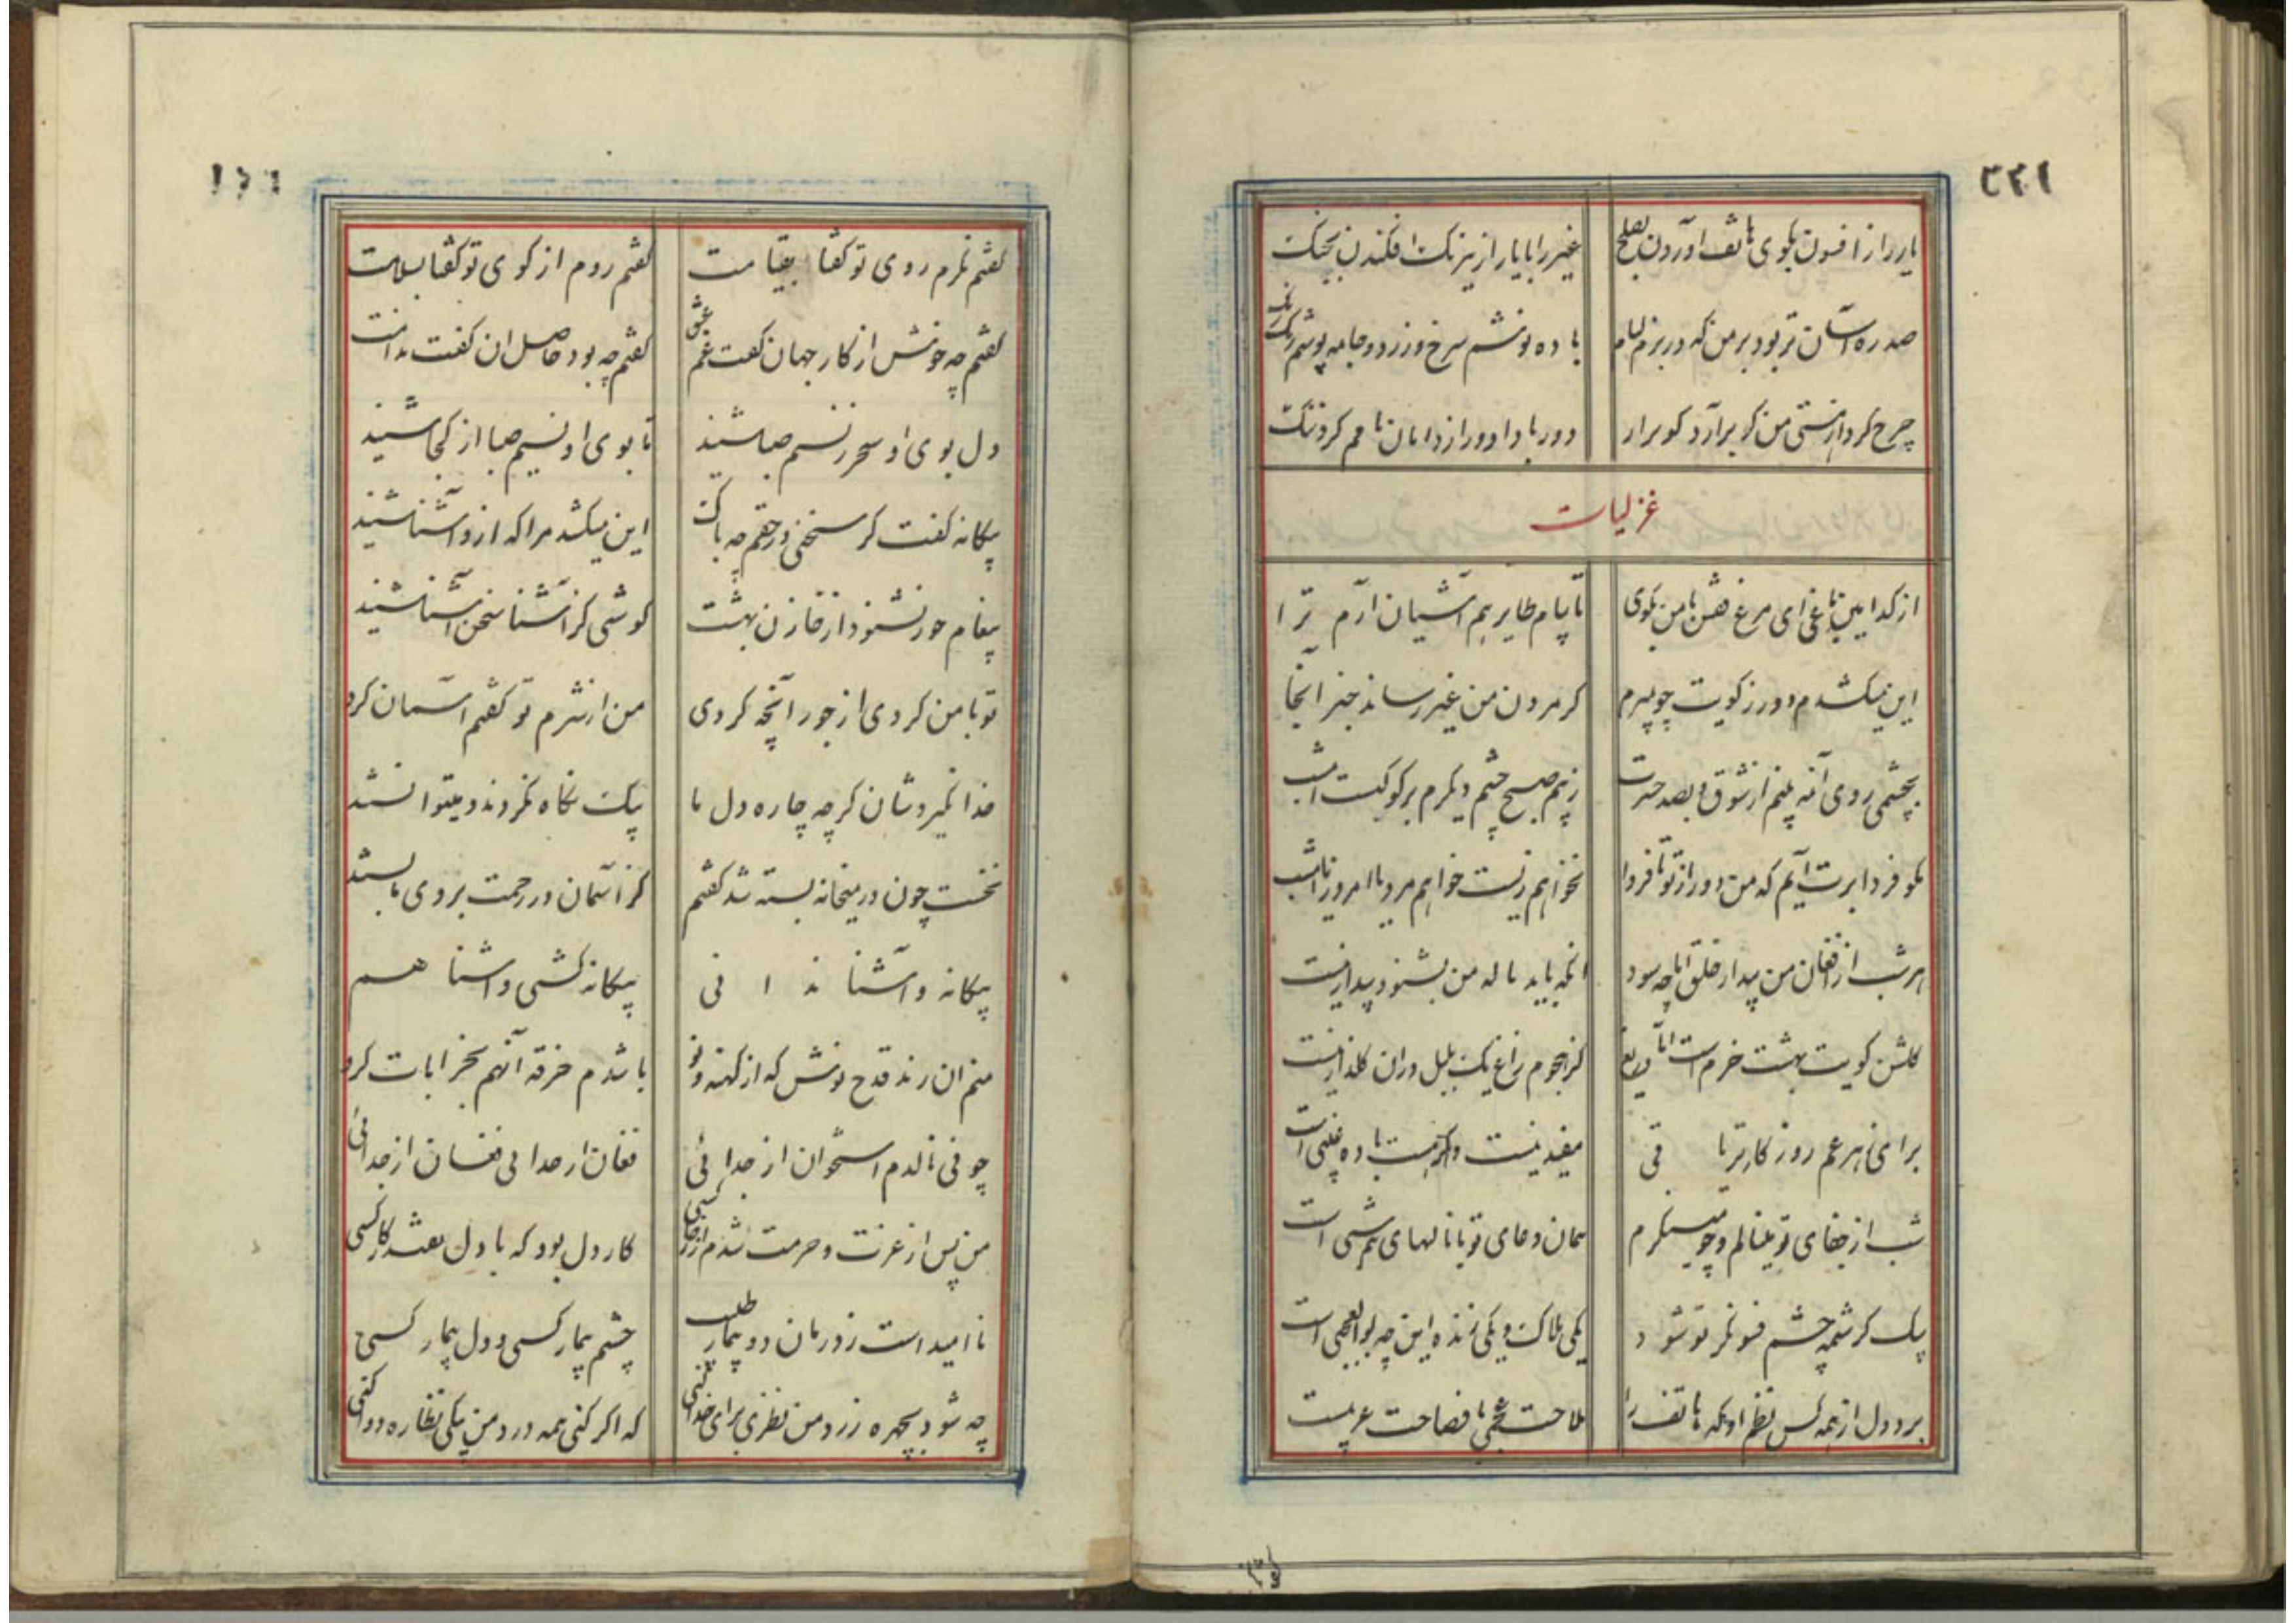 ٣٤١
یار را ز افسون بکوی هاتف آوردن بصلح غیر را با یار از نیرنک افکندن بجنک
صد ره آسان تر بود بر من که در بزم لئام باده نوشم سرخ و زرد و جامه پوشم رنک رنک
چرخ کرد از هستی من کر برآرد کو برار دور بادا دور از دامان نامم کرد ننک
غزلیات
از کدامین باغی ای مرغ قفس با من بکوی تا پیام طایر هم آشیان آرم ترا
این میکشدم دور ز کویت چو بمیرم کز مردن من غیر رساند خبر آنجا
بچشمی روی آن مه بینم از شوق و بصد حسرت ز بیم صبح چشم دیکرم بر کوکب است امشب
بکو فردا برت آیم که من دور از تو تا فردا نخواهم زیست خواهم مرد یا امروز یا امشب
هر شب از افغان من بیدار خلق اما چه سود انکه باید ناله من بشنود بیدار نیست
کلشن کویت بهشت خرم است اما دریغ کز هجوم زاغ یک بلبل در آن کلزار نیست
شب از جفای تو مینالم و چو مینکرم همان دعای تو با نالهای نیم شبی است
بیک کرشمه چشم فسونکر تو شود یکی هلاک و یکی زنده این چه بوالعجبی است
برد دل از همه کس نظم او که هاتف را ملاحت عجمی با فصاحت عربیست
کفتم نکرم روی تو کفتا بقیامت کفتم روم از کوی تو کفتا بسلامت
کفتم چه خوش از کار جهان کفت غم عشق کفتم چه بود حاصل ان کفت ندامت
دل بوی او سحر ز نسیم صبا شنید تا بوی او نسیم صبا از کجا شنید
بیکانه کفت کر سخنی در حقم چه باک این میکشد مرا که ازو آشنا شنید
پیغام حور نشنود از خازن بهشت کوشی کز آشنا سخن آشنا شنید
تو با من کردی از جور آنچه کردی من از شرم تو کفتم آسمان کرد
خدا نکیردشان کرچه چاره دل ما بیک نکاه نکردند و میتوانستند
نخست چون در میخانه بسته شد کفتم کز آسمان در رحمت بروی ما بستند
بیکانه و آشنا ندانی بیکانه کشی و آشنا هم
منم ان رند قدح نوش که از کهنه و نو باشدم خرقه آنهم بخرابات کرو
چو نی نالدم استخوان از جدائی فغان از جدائی فغان از جدائی
من پس از عزت و حرمت شدم ار خار کسی کار دل بود که با دل نفتد کار کسی
نا امید است ز درمان دو بیمار طبیب چشم بیمار کسی و دل بیمار کسی
چه شود بچهره زرد من نظری برای خدا کنی که اکر کنی همه درد من بیکی نظاره دوا کنی